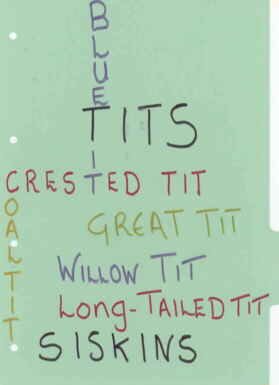 BLUETIT
TITS
CRESTED TIT
COALTIT
GREAT TIT
WILLOW TIT
Long-TAILED TIT
SISKINS